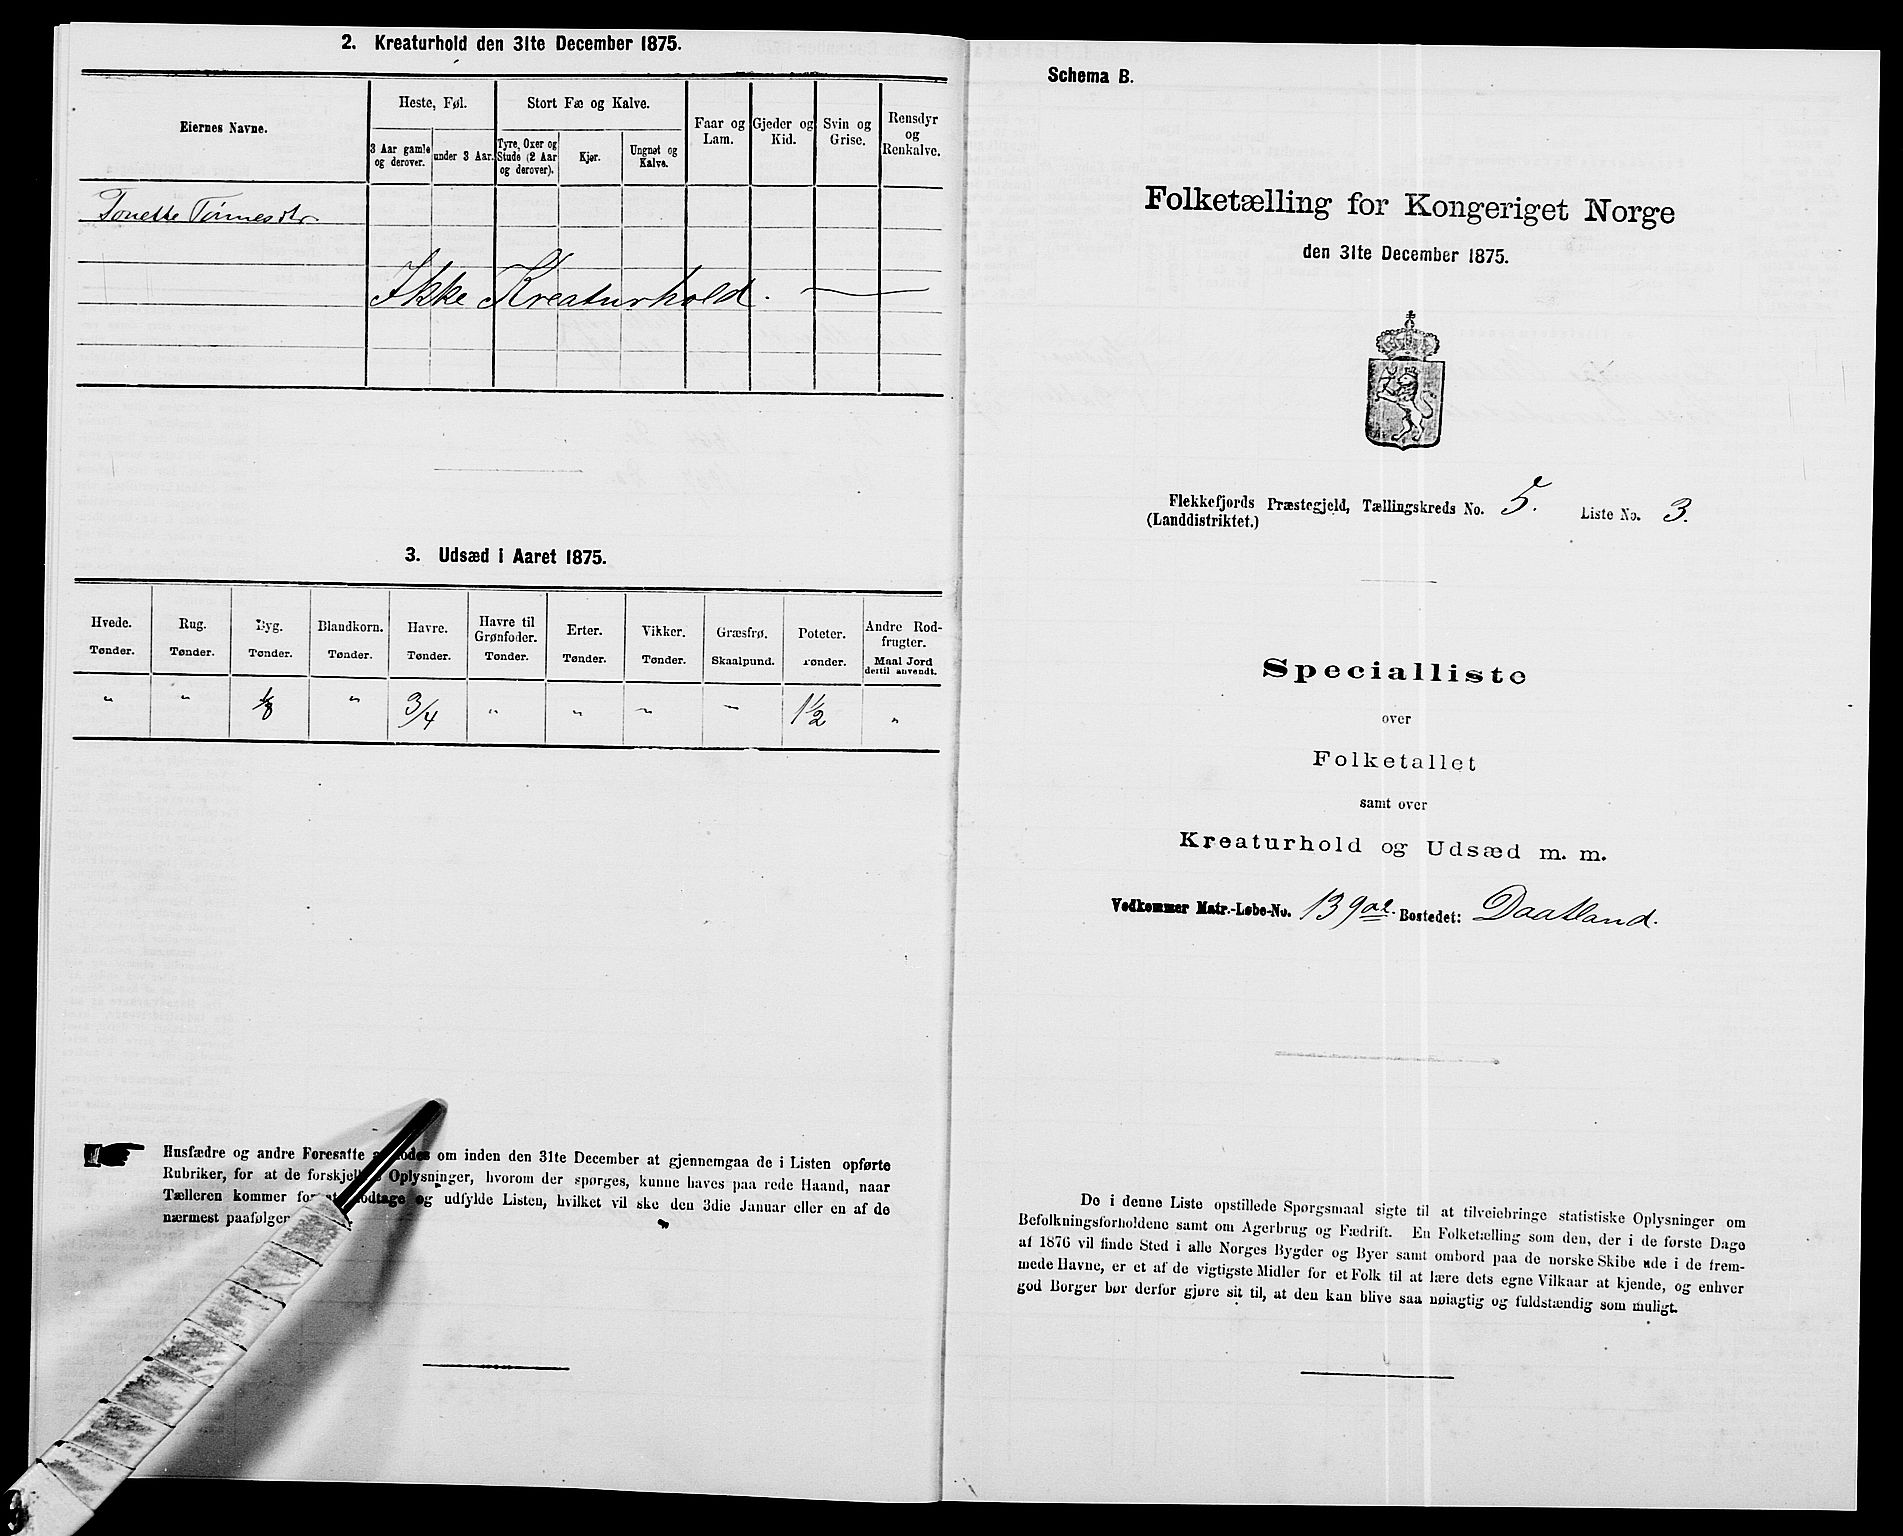 2. Kreaturhold den 31te December 1875.
Eiernes Navne.
Heste, Føl.
Stort Fæ og Kalve.
Faar og Lam.
Gjeder og Kid.
Svin og Grise.
Rensdyr og Renkalve.
3 Aar gamle og derover.
under 3 Aar.
Tyre, Oxer og Stude (2 Aar og derover).
Kjør.
Ungnøt og Kalve.
Tonette Tönnesdtr
Ikke Kreaturhold. —
3. Udsæd i Aaret 1875.
Hvede. Rug. Byg. Blandkorn. Havre. Havre til Grønfoder. Erter. Vikker. Græsfrø. Poteter. Andre Rodfrugter.
Tønder. Tønder. Tønder. Tønder. Tønder. Tønder. Tønder. Tønder. Skaalpund. Tønder. Maal Jord dertil anvendt.
" " 1/8 " 3/4 " " " " 1 1/2 "
Husfædre og andre Foresatte om inden den 31te December at gjennemgaa de i Listen opførte
Rubriker, for at de Oplysninger, hvorom der spørges, kunne haves paa rede Haand, naar
Tælleren kommer og udfylde Listen, hvilket vil ske den 3die Januar eller en af de
nærmest
Schema B.
Folketælling for Kongeriget Norge
den 31te December 1875.
Flekkefjords Præstegjeld, Tællingskreds No. 5. Liste No. 3.
(Landdistriktet.)
Specialliste
over
Folketallet
samt over
Kreaturhold og Udsæd m. m.
Vedkommer Matr.-Løbe-No. 139 Bostedet: Daatland.
De i denne Liste opstillede Spørgsmaal sigte til at tilveiebringe statistiske Oplysninger om
Befolkningsforholdene samt om Agerbrug og Fædrift. En Folketælling som den, der i de første Dage
af 1876 vil finde Sted i alle Norges Bygder og Byer samt ombord paa de norske Skibe ude i de frem-
mede Havne, er et af de vigtigste Midler for et Folk til at lære dets egne Vilkaar at kjende, og enhver
god Borger bør derfor gjøre sit til, at den kan blive saa nøiagtig og fuldstændig som muligt.